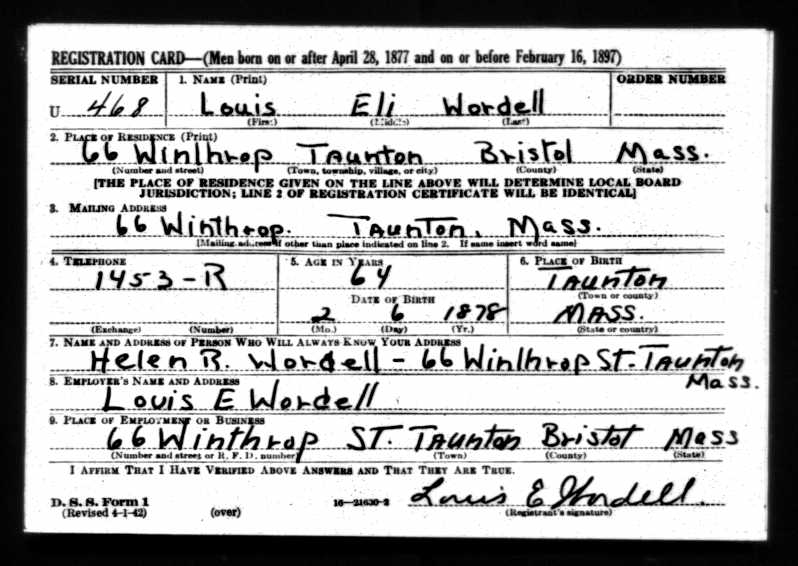 REGISTRATION CARD—(Men born on or after April 28, 1877 and on or before February 16, 1897)
SERIAL NUMBER 1. NAME (Print) ORDER NUMBER
U 468 Louis Eli Wordell
(First) (Middle) (Last)
2. PLACE OF RESIDENCE (Print)
66 Winthrop Taunton Bristol Mass.
(Number and street) (Town, township, village, or city) (County) (State)
[THE PLACE OF RESIDENCE GIVEN ON THE LINE ABOVE WILL DETERMINE LOCAL BOARD
JURISDICTION; LINE 2 OF REGISTRATION CERTIFICATE WILL BE IDENTICAL]
3. MAILING ADDRESS
66 Winthrop. Taunton, Mass.
[Mailing address if other than place indicated on line 2. If same insert word same]
4. TELEPHONE 5. AGE IN YEARS 6. PLACE OF BIRTH
1453-R 64 Taunton
DATE OF BIRTH (Town or county)
2 6 1878 Mass.
(Exchange) (Number) (Mo.) (Day) (Yr.) (State or country)
7. NAME AND ADDRESS OF PERSON WHO WILL ALWAYS KNOW YOUR ADDRESS
Helen R. Wordell - 66 Winthrop St. Taunton
Mass.
8. EMPLOYER'S NAME AND ADDRESS
Louis E Wordell
9. PLACE OF EMPLOYMENT OR BUSINESS
66 Winthrop ST. Taunton Bristol Mass
(Number and street or R. F. D. number) (Town) (County) (State)
I AFFIRM THAT I HAVE VERIFIED ABOVE ANSWERS AND THAT THEY ARE TRUE.
Louis E Wordell.
D. S. S. Form 1 16—21630-2
(Revised 4-1-42) (over) (Registrant's signature)